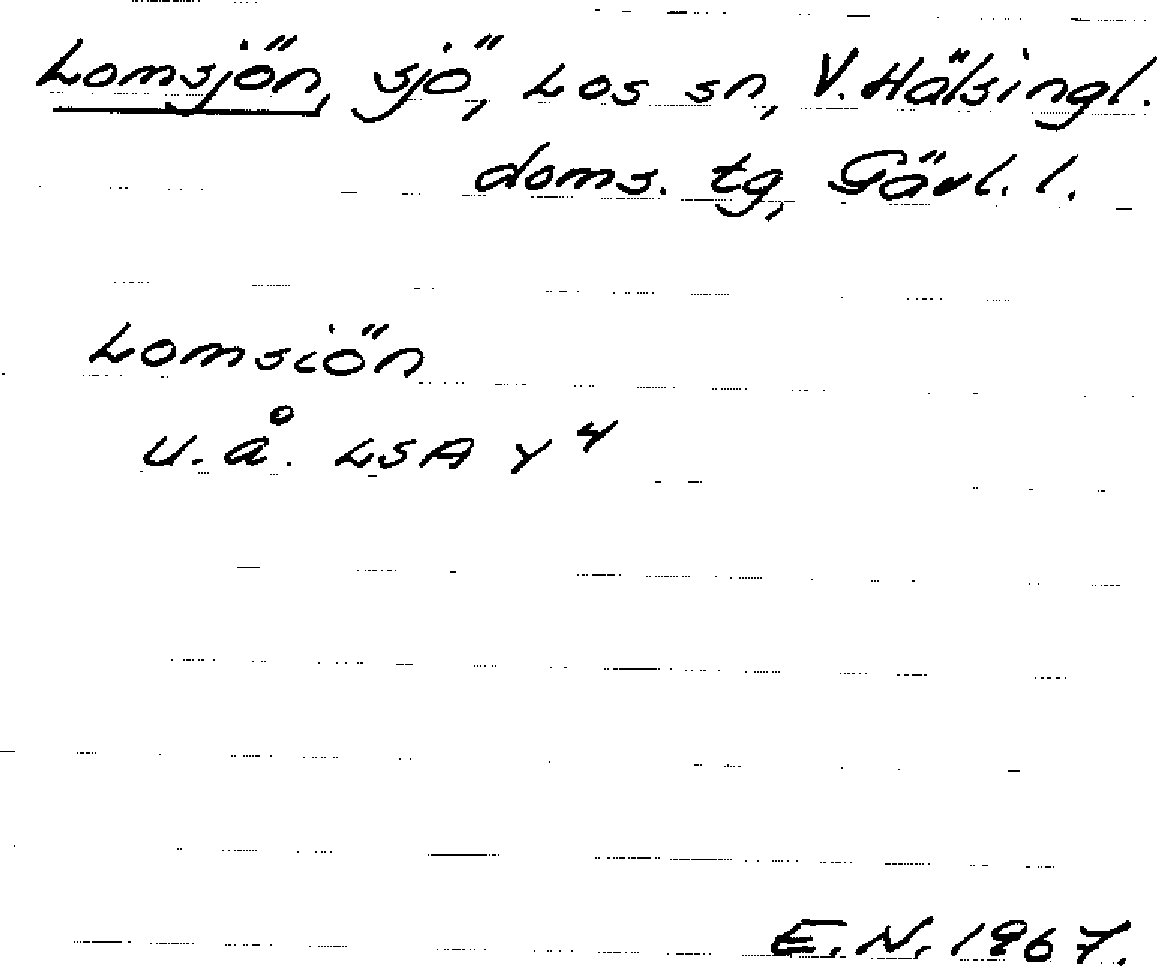 Lomsjön, sjö, Los sn, V. Hälsingl.
doms. tg, Gävl. l.
Lomsiön
u.å. LSA Y 4
E.N. 1967.